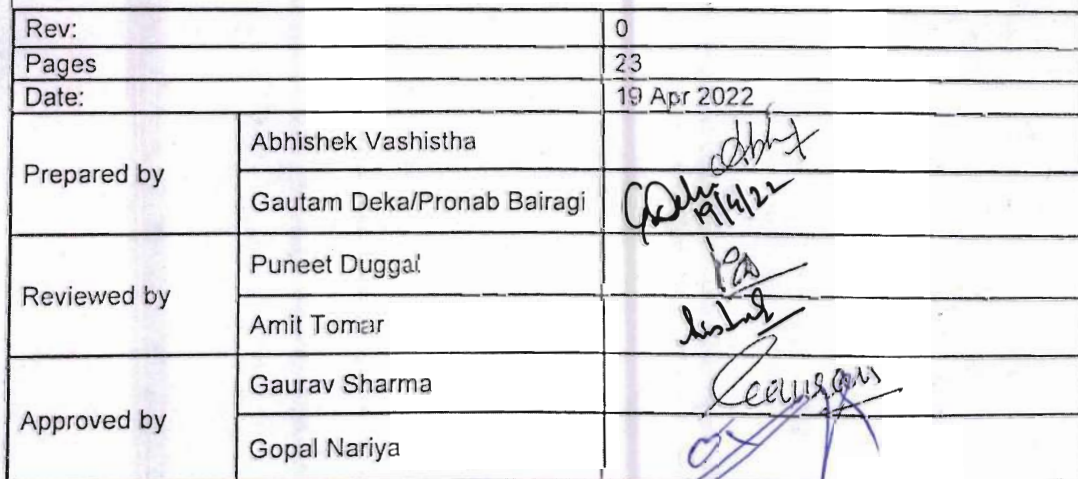 Rev: 0
Pages 23
Date: 19 Apr 2022
Prepared by
Abhishek Vashistha
Gautam Deka/Pronab Bairagi
GDeka
19/4/22
Reviewed by
Puneet Duggal
Amit Tomar
Approved by
Gaurav Sharma
Gopal Nariya